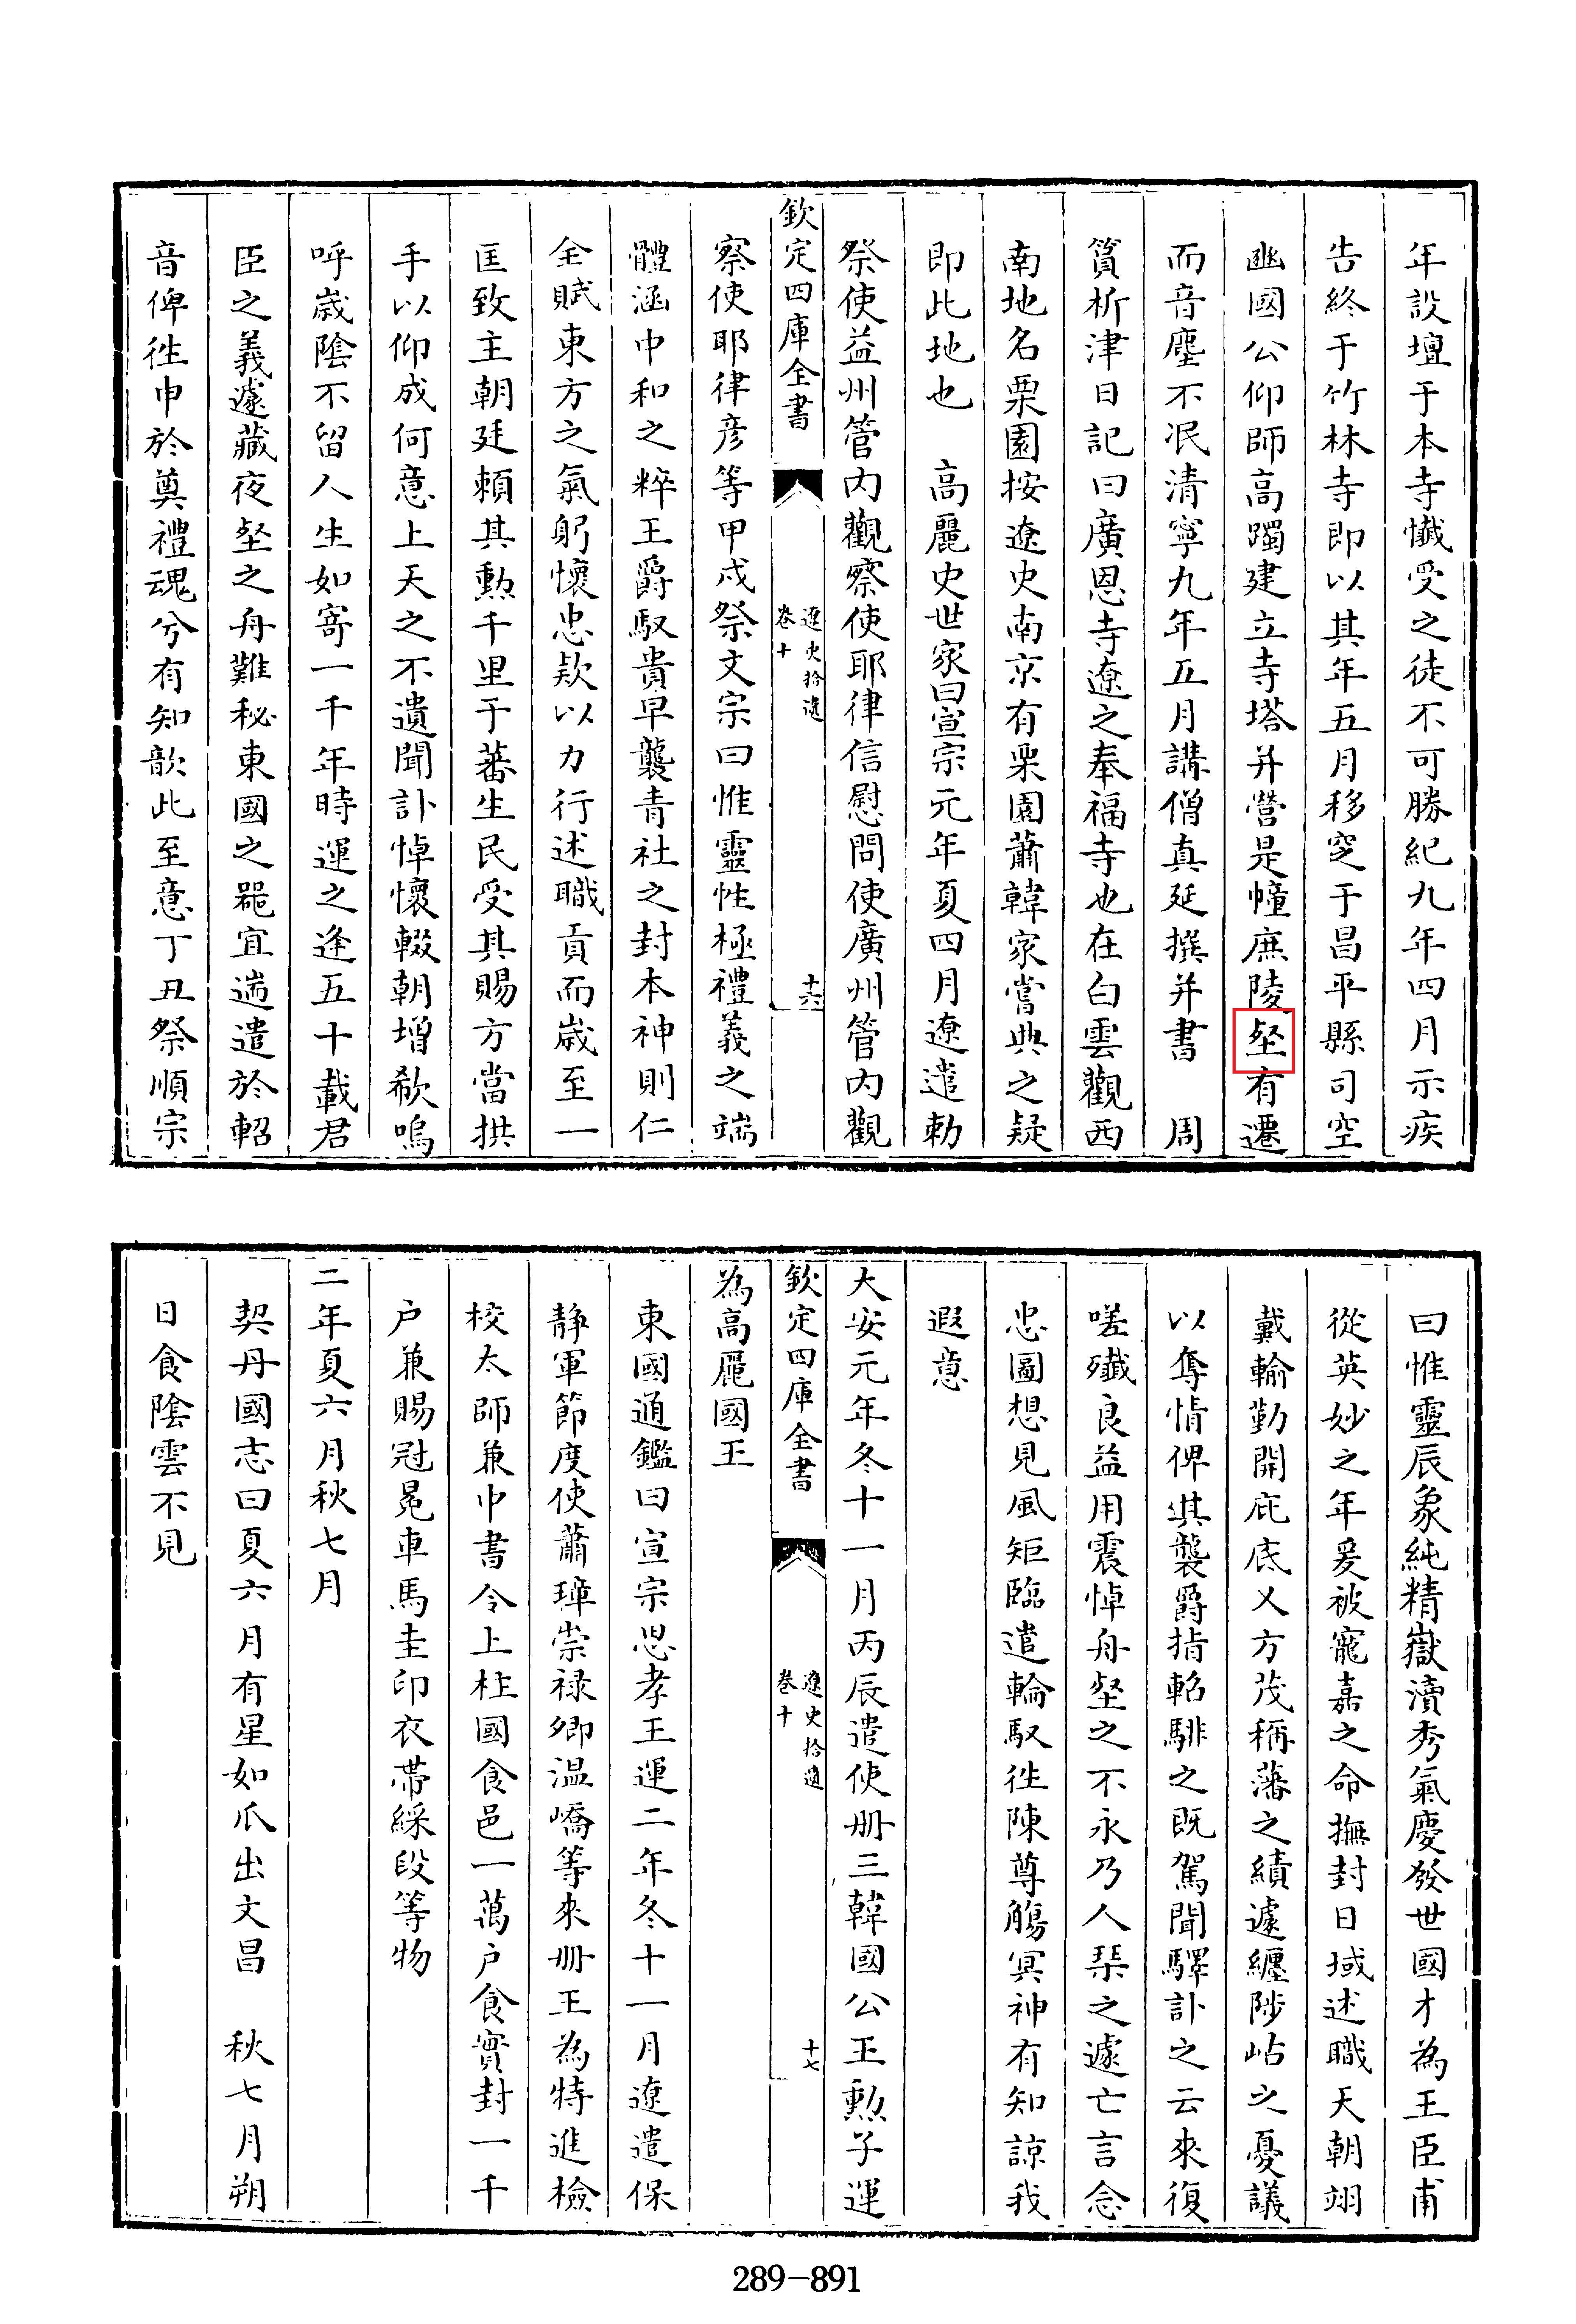 年設壇于本寺懺受之徒不可勝紀九年四月示疾
告終于竹林寺即以其年五月移窆于昌平縣司空
豳國公仰師高躅建立寺塔并營是幢庶陵壑有遷
而音塵不冺清寧九年五月講僧真延撰并書　周
篔析津日記曰廣恩寺遼之奉福寺也在白雲觀西
南地名栗園按遼史南京有栗園蕭韓家嘗典之疑
即此地也　高麗史世家曰宣宗元年夏四月遼遣勅
祭使益州管内觀察使耶律信慰問使廣州管内觀
欽定四庫全書
遼史拾遺
卷十
十六
察使耶律彦等甲戌祭文宗曰惟靈性極禮義之端
體涵中和之粹王爵馭貴早襲青社之封本神則仁
全賦東方之氣躬懷忠欵以力行述職貢而歲至一
匡致主朝廷頼其勲千里于蕃生民受其賜方當拱
手以仰成何意上天之不遺聞訃悼懷輟朝增欷嗚
呼歲陰不留人生如寄一千年時運之逢五十載君
臣之義遽藏夜壑之舟難秘東國之噐宜遄遣於軺
音俾徃申於奠禮魂兮有知歆此至意丁丑祭順宗
曰惟靈辰象純精嶽瀆秀氣慶發世國才為王臣甫
從英妙之年爰被寵嘉之命撫封日域述職天朝翊
戴輸勤開庇底乂方茂稱藩之績遽纒陟岵之憂議
以奪情俾其襲爵指軺騑之既駕聞驛訃之云來復
嗟殱良益用震悼舟壑之不永乃人琹之遽亡言念
忠圖想見風矩臨遣輪馭徃陳尊觴冥神有知諒我
遐意
大安元年冬十一月丙辰遣使册三韓國公王勲子運
欽定四庫全書
遼史拾遺
卷十
十七
為高麗國王
東國通鑑曰宣宗思孝王運二年冬十一月遼遣保
静軍節度使蕭璋崇禄卿温嶠等來册王為特進檢
校太師兼中書令上柱國食邑一萬户食實封一千
户兼賜冠冕車馬圭印衣帯綵段等物
二年夏六月秋七月
契丹國志曰夏六月有星如爪出文昌　秋七月朔
日食陰雲不見
289-891